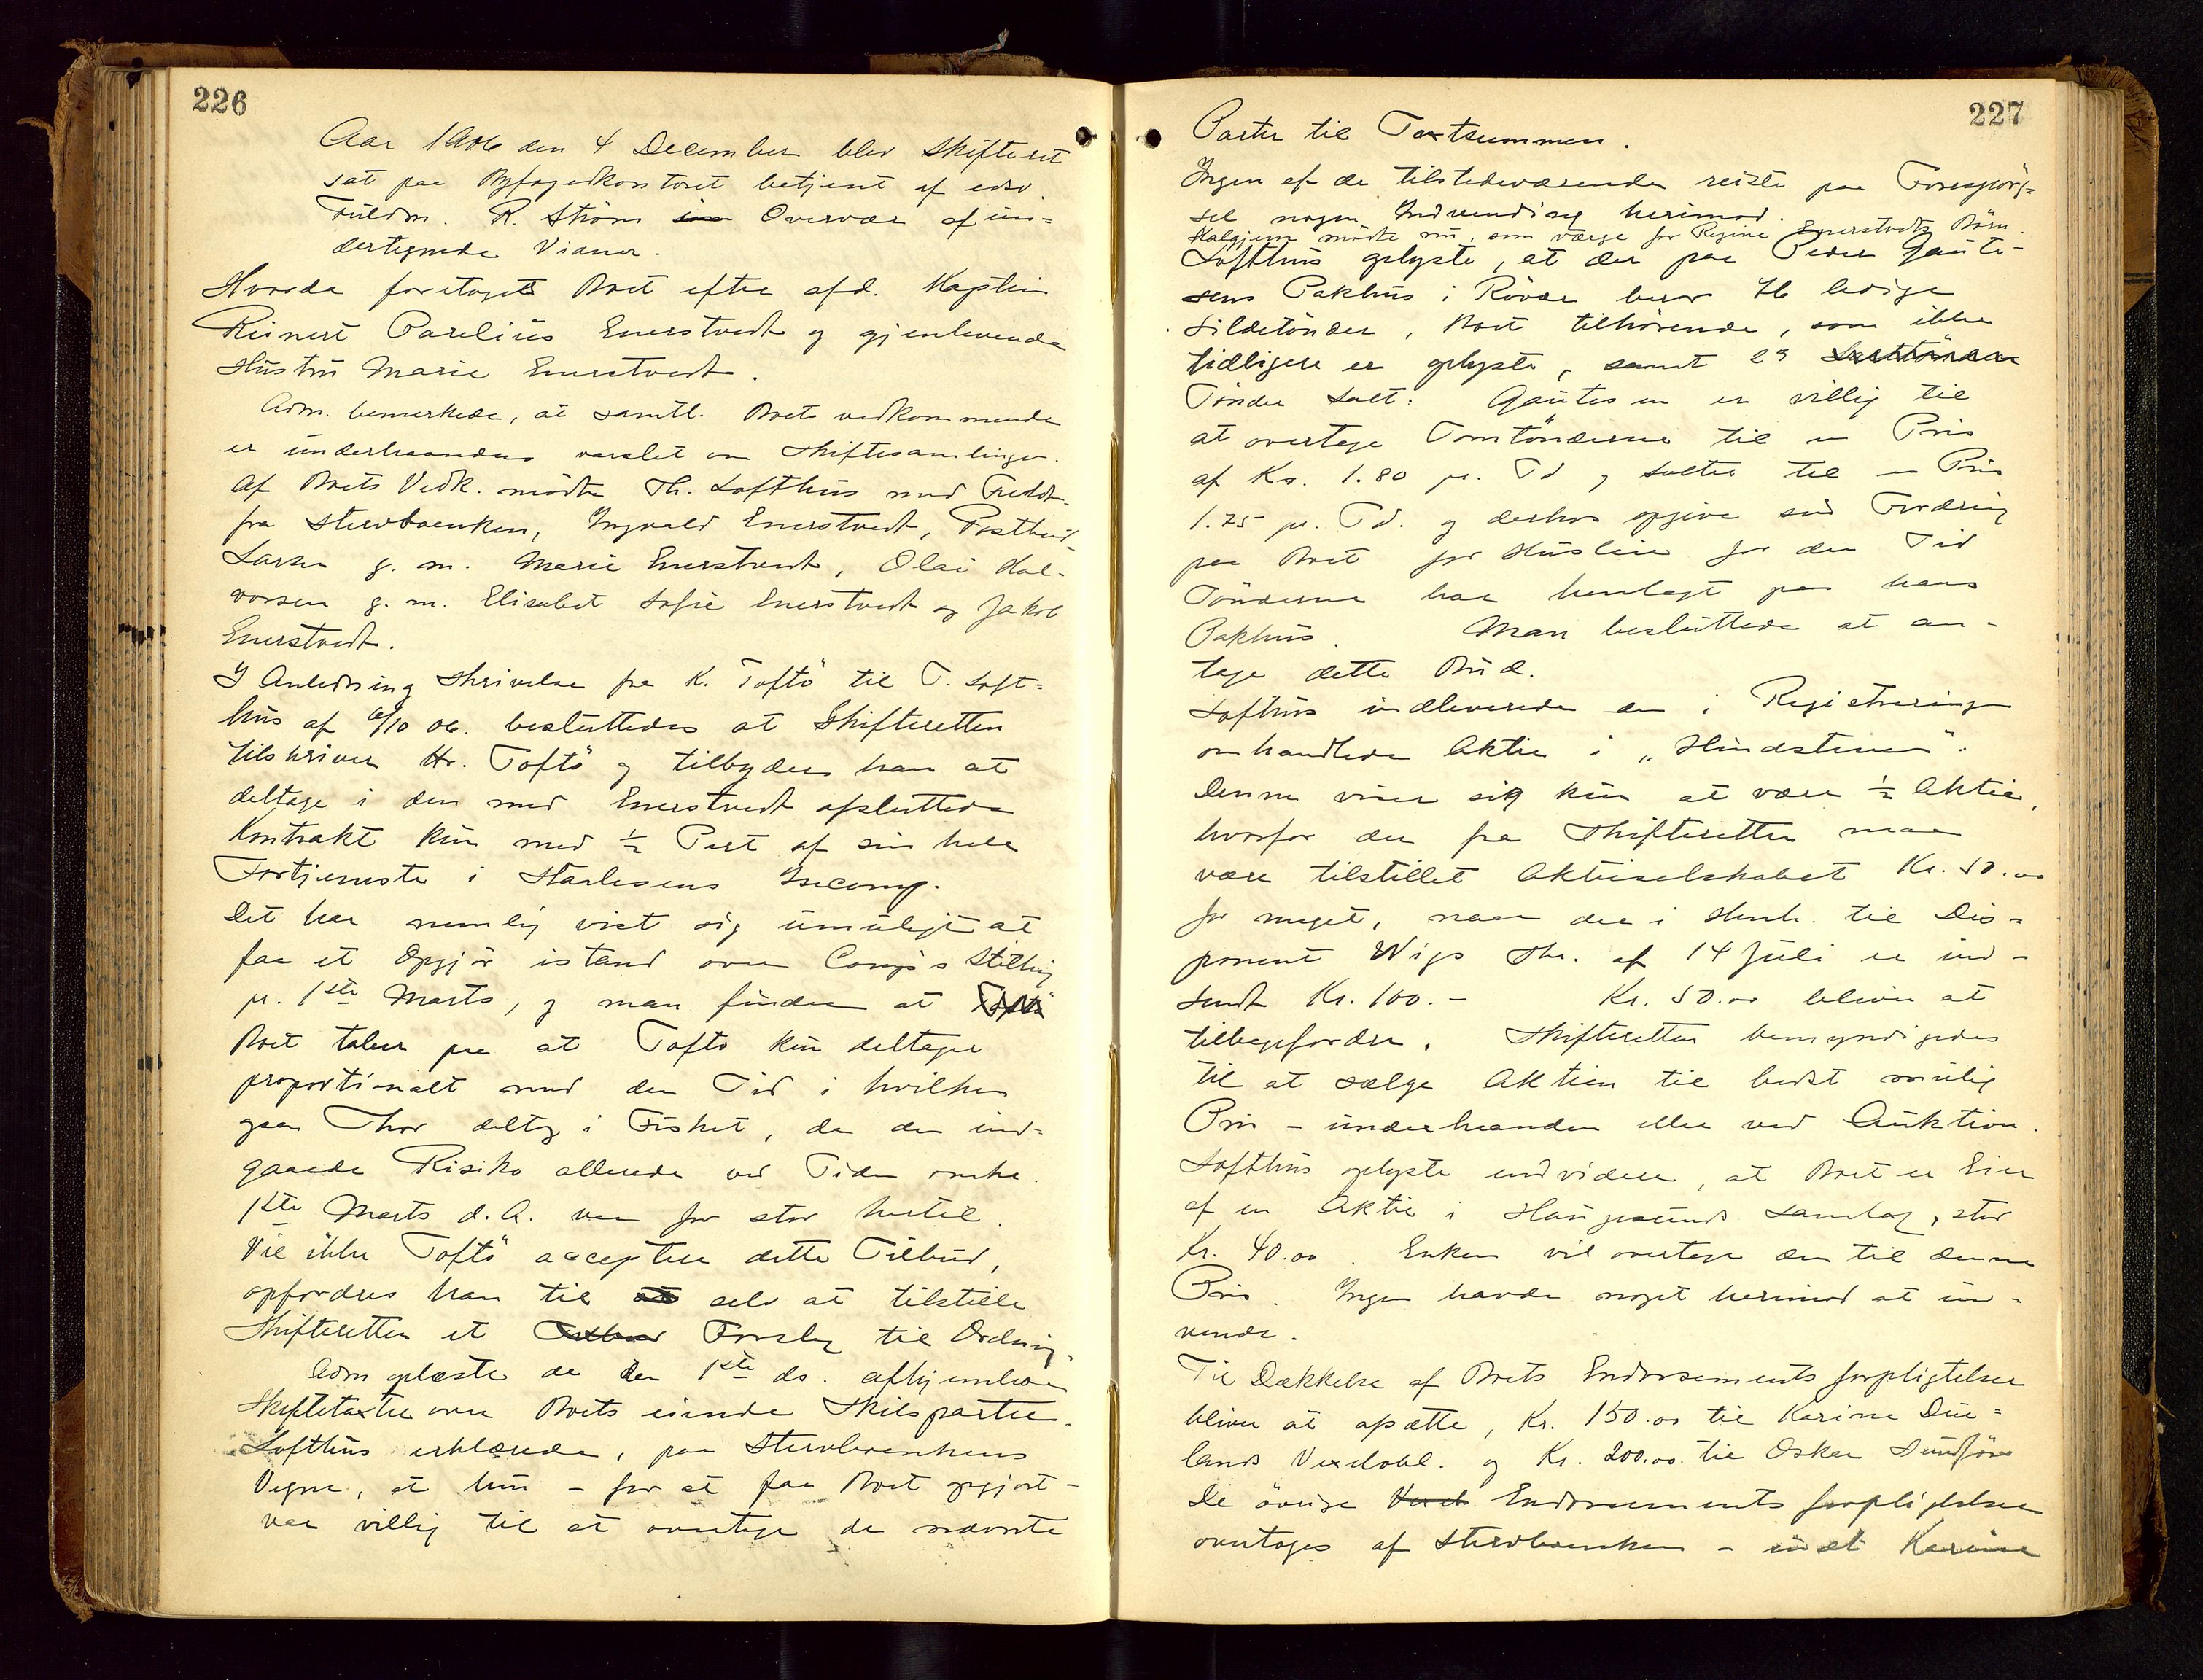 226
Aar 1906 den 4 December blev Skifteret
sat paa Byfogedkontoret betjent af edsv.
Fuldm. R. Ström i Overvær af un-
dertegnede Vidner.
Hvorda foretoges Boet efter afd. Kaptein
Reinert Parelius Enerstvedt og gjenlevende
Hustru Marie Enerstvedt.
Adm. bemerkede, at samtl. Boets vedkommende
er underhaanden varslet om Skiftesamlingen.
Af Boets Vedk. mödte Th. Lofthus med Fuldm.
fra Stervboenken, Ingvald Enerstvedt, Postbud
Larsen g. m. Marie Enerstvedt, Olai Hal-
vorsen g. m. Elisabet Sofie Enerstvedt og Jakob
Enerstvedt.
I Anledning Skrivelse fra K. Toftö til T. Loft=
hus af 6/10 06. besluttedes at Skifteretten
tilskriver Hr. Toftö og tilbyder ham at
deltage i den med Enerstvedt afsluttede
Kontrakt kun med ½ Part af sin hele
Fortjeneste i Staalesens Iscomp.
Det har nemlig vist sig umuligt at
faa et Opgjör istand over Comp's Stilling
pr. 1ste Marts, og man finder at Toftö
Boet taler for at Toftö kun deltager
proportionalt med den Tid i hvilken
ogsaa Thor deltog i Fisket, da den ind-
gaaede Risiko allerede ved Tiden omkr.
1ste Marts d.A. var for stor hertil.
Vil ikke Toftö acceptere dette Tilbud,
opfordres han til at selv at tilstille
Skifteretten et Forslag til Ordning.
Adm oplæste de den 1ste ds. afhjemlede
Skiftetaxter over Boets eiende Skibsparter.
Lofthus erklærede, paa Stervboenkens
Vegne, at hun - for at faa Boet opgjort -
var villig til at overtage de nævnte
227
Parter til Taxtsummen.
Ingen af de tilstedeværende reiste paa Foresporg=
sel nogen Indvending herimod.
Halgjem mödte nu, som værge for Regine Enerstvedts Börn.
Lofthus oplyste, at der paa Peder Gaute-
sens Pakhus i Rövær beror 76 ledige
Sildetönder, Boet tilhörende, som ikke
tidligere er oplyste, samt 29
Tönder Salt. Gautesen er villig til
at overtage Tomtönderne til en Pris
af Kr. 1.80 pr. Td og Saltet til en Pris
1.75 pr. Td. og derhos opgive sin Fordring
paa Boet for Husleie for den Tid
Tönderne har henlagt paa hans
Pakhus. Man besluttede at an-
tage dette Bud.
Lofthus indleverede den i Registreringen
omhandlede Aktie i "Hindsteinen".
Denne viser sig kun at være ½ Aktie,
hvorfor der fra Skifteretten maa
være tilstillet Aktieselskabet Kr. 50.00
for meget, naar der i Henh. til Dis-
ponent Wigs Skr. af 14 Juli er ind-
sendt Kr. 100.- Kr. 50.00 bliver at
tilbagefordre. Skifteretten bemyndigedes
til at sælge Aktien til bedst mulig
Pris - underhaanden eller ved Auktion.
Lofthus oplyste endvidere, at Boet er Eier
af en Aktie i Haugesunds Samlag, stor
Kr. 40.00. Enken vil overtage den til denne
Pris. Ingen havde noget herimod at ind-
vende.
Til Dækkelse af Boets Endorsementsforpligtelser
bliver at afsætte, Kr. 150.00 til Karine Due=
lands Vexelobl. og Kr. 200.00 til Oskar Sundför
De övrige Vexel Endorsementsforpligtelser
overtages af Stervboenken - undt Karine